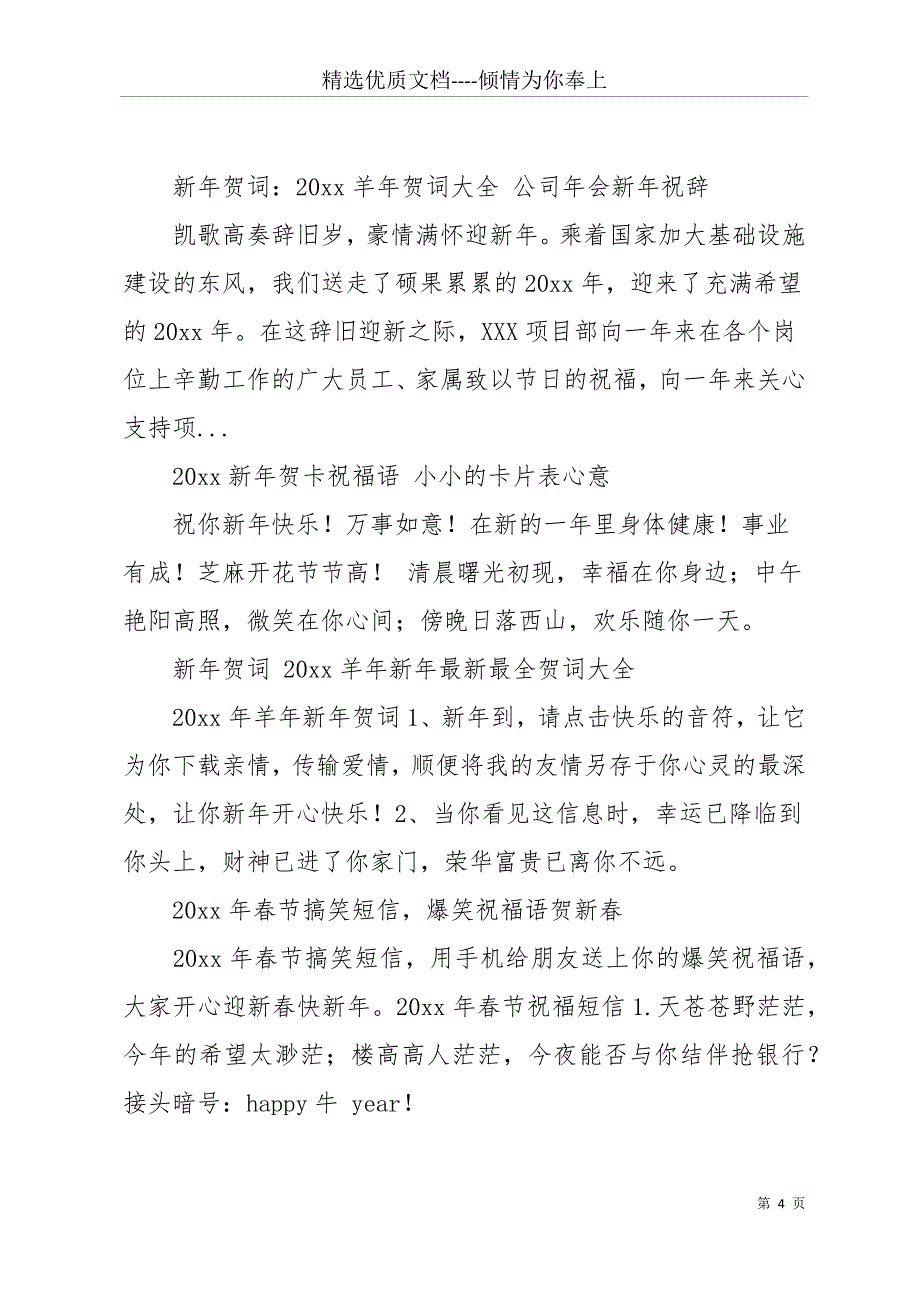 精选优质文档----倾情为你奉上
新年贺词：20xx 羊年贺词大全 公司年会新年祝辞
凯歌高奏辞旧岁，豪情满怀迎新年。乘着国家加大基础设施
建设的东风，我们送走了硕果累累的 20xx 年，迎来了充满希望
的 20xx 年。在这辞旧迎新之际，XXX 项目部向一年来在各个岗
位上辛勤工作的广大员工、家属致以节日的祝福，向一年来关心
支持项...
20xx 新年贺卡祝福语 小小的卡片表心意
祝你新年快乐！万事如意！在新的一年里身体健康！事业
有成！芝麻开花节节高！ 清晨曙光初现，幸福在你身边；中午
艳阳高照，微笑在你心间；傍晚日落西山，欢乐随你一天。
新年贺词 20xx 羊年新年最新最全贺词大全
20xx 年羊年新年贺词 1、新年到，请点击快乐的音符，让它
为你下载亲情，传输爱情，顺便将我的友情另存于你心灵的最深
处，让你新年开心快乐！2、当你看见这信息时，幸运已降临到
你头上，财神已进了你家门，荣华富贵已离你不远。
20xx 年春节搞笑短信，爆笑祝福语贺新春
20xx 年春节搞笑短信，用手机给朋友送上你的爆笑祝福语，
大家开心迎新春快新年。20xx 年春节祝福短信 1.天苍苍野茫茫，
今年的希望太渺茫；楼高高人茫茫，今夜能否与你结伴抢银行？
接头暗号：happy 牛 year！
第 4 页